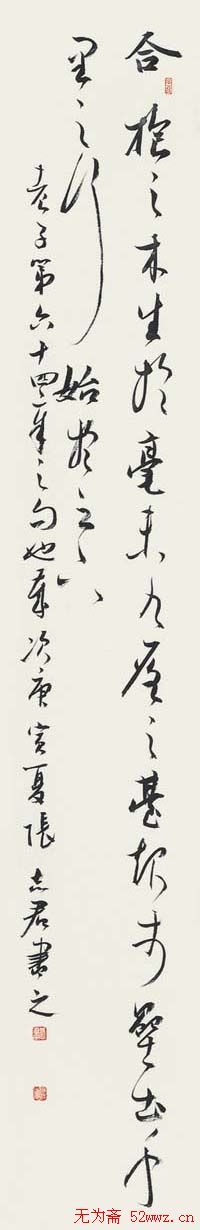 合抱之木生於毫末九層之臺起於壘土千
里之行始於足下
老子第六十四章之句也歲次庚寅夏張志君書之
无为斋 52wwz.cn